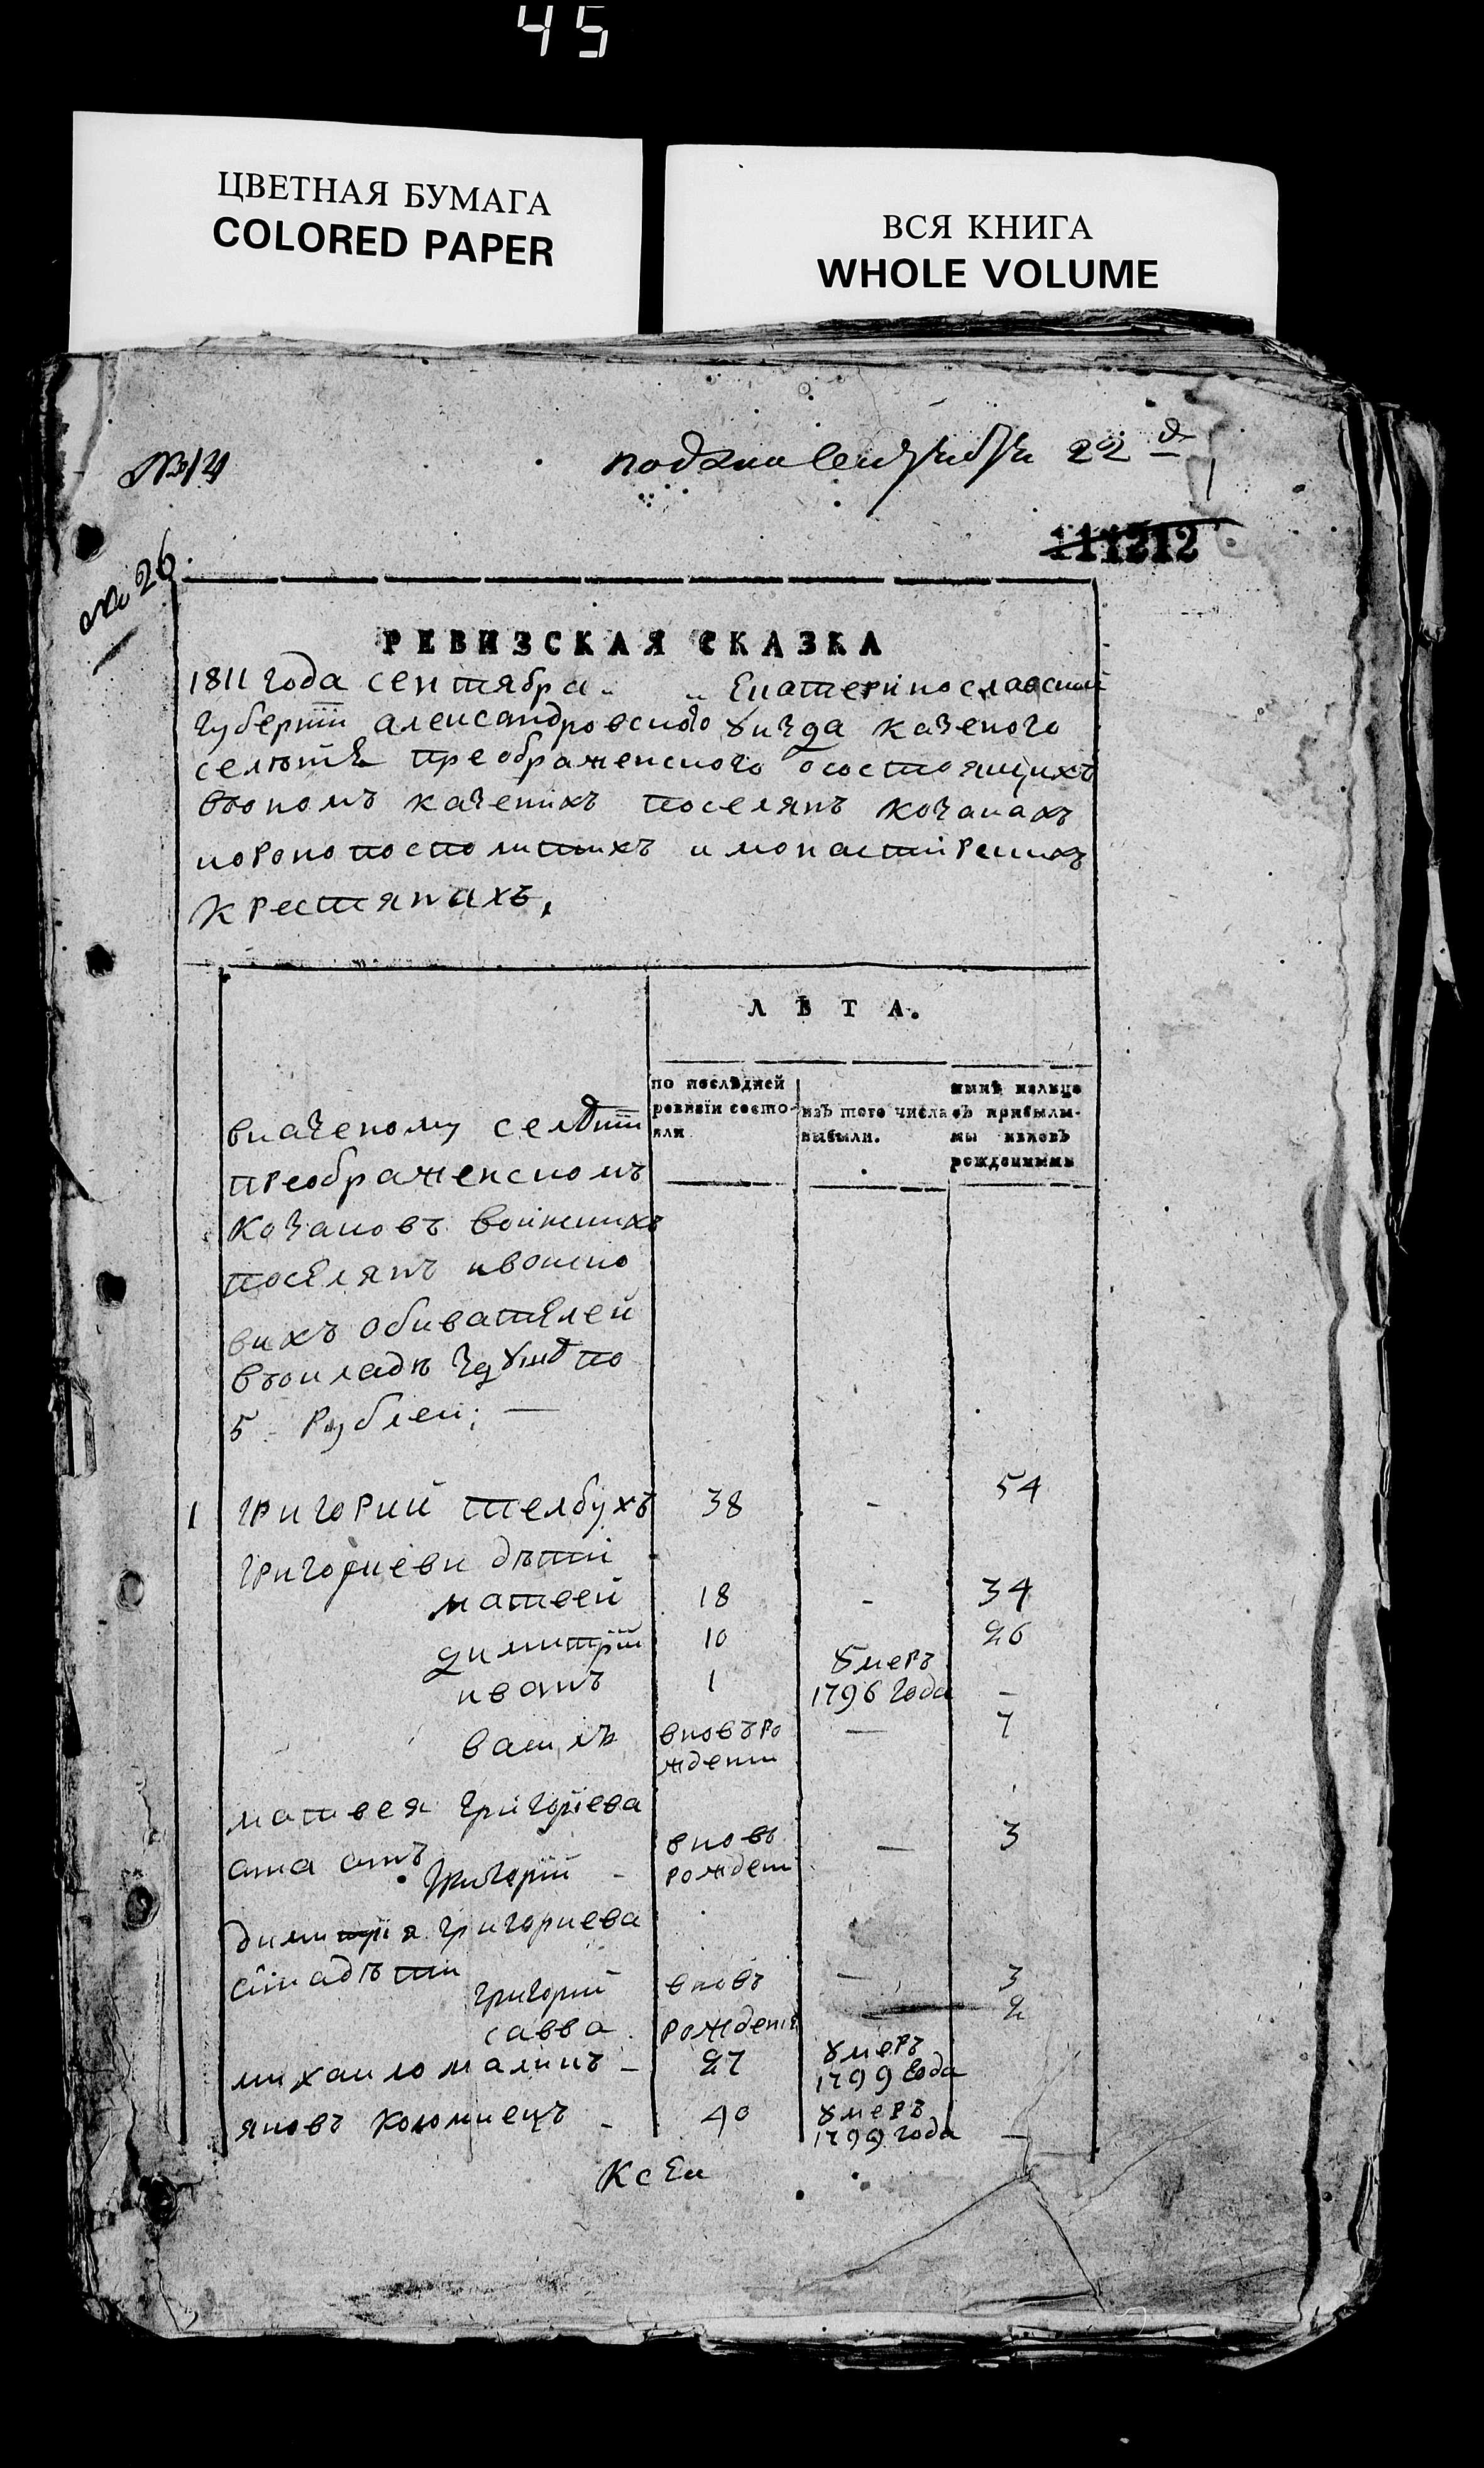 45
ЦВЕТНАЯ БУМАГА
COLORED PAPER
ВСЯ КНИГА
WHOLE VOLUME
подана сентября 22 д
№ 26
РЕВИЗСКАЯ СКАЗКА
1811 года сентября Екатеринославской
губернїи александровского уизда казеного
преображенского осостоящихъ
вьономъ казенихъ поселянъ козакахъ
коропопосполитихъ и монастїрскихъ
крестянахъ,
ЛѢТА.
по послѣдней
ревизіи состо-
яли
изъ того числа
выбыли.
нынѣ на лицо
съ прибылы-
ми и вновь
рожденными
вказеному
преображенскомъ
козаковъ воинскихъ
поселянъ ивоинско
вихъ обивателей
въокладѣ здуши по
5 рублей; —
1 григорий телбухъ 38 - 54
григориеви дѣти
матвей 18 - 34
димитрїй 10 26
иванъ 1 умеръ 1796 года -
василь вновъро ждени — 7
матвея григорїева
сина синъ
григорїй - вновь рождени — 3
димитрїя григориева
сїнадѣти
григорїй вновъ — 3
савва рождени 2
михаило малинъ - 27 умеръ 1799 года
яковъ коломиецъ - 40 умеръ 1799 года —